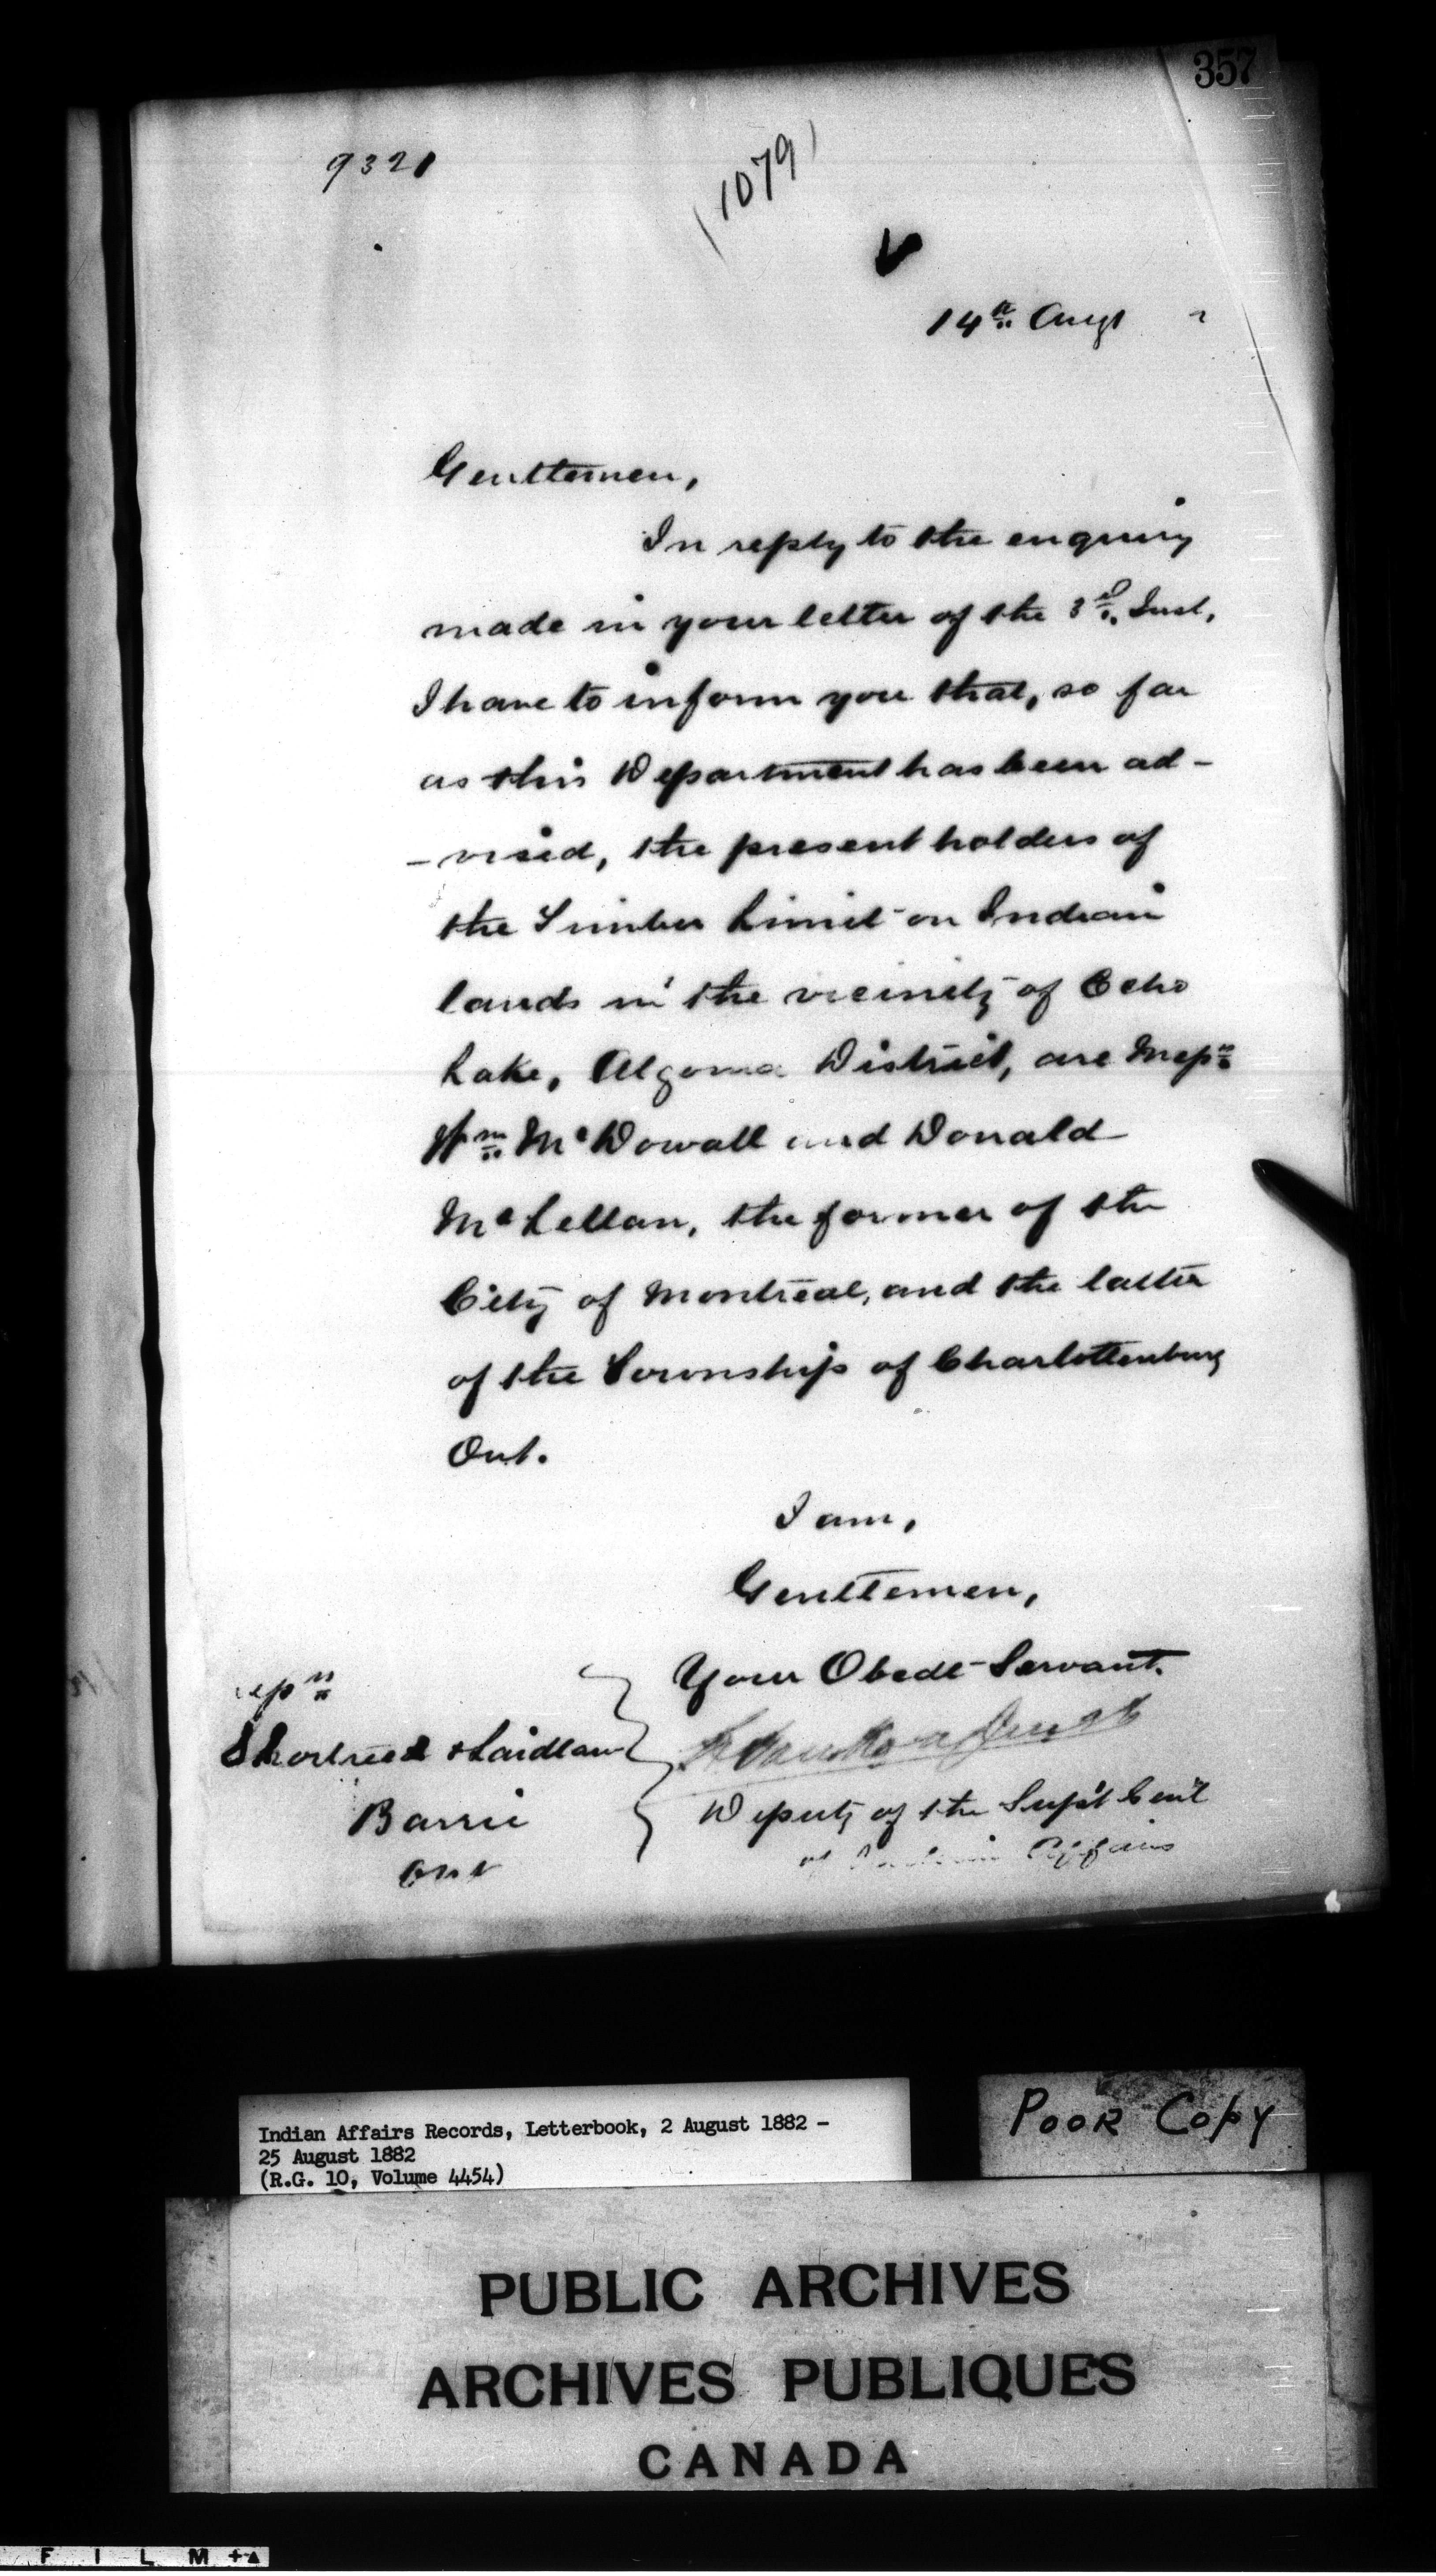 357
9321
(1079)
14th Augt 2
Gentlemen,
In reply to the enquiry
made in your letter of the 3rd Inst,
I have to inform you that, so far
as this Department has been ad-
-vised, the present holders of
the Timber Limit on Indian
lands in the vicinity of Echo
Lake, Algoma District, are Messrs
Wm McDowall and Donald
McLellan, the former of the
City of Montreal, and the latter
of the Township of Charlottenburg
Ont.
I am,
Gentlemen,
Your Obedt Servant.
Shortreed & Laidlaw
Barrie
Ont
Deputy of the Sup't Gen'l
of Indian Affairs
Indian Affairs Records, Letterbook, 2 August 1882 -
25 August 1882
(R.G. 10, Volume 4454)
POOR COPY
PUBLIC ARCHIVES
ARCHIVES PUBLIQUES
CANADA
FILM